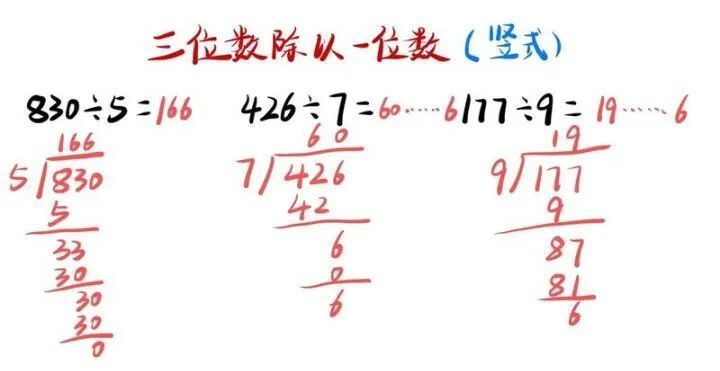 三位数除以一位数（竖式）
830÷5=166 426÷7=60……6 177÷9=19……6
166 60 19
5/830 7/426 9/177
5 42 9
33 6 87
30 0 81
30 6 6
30
0